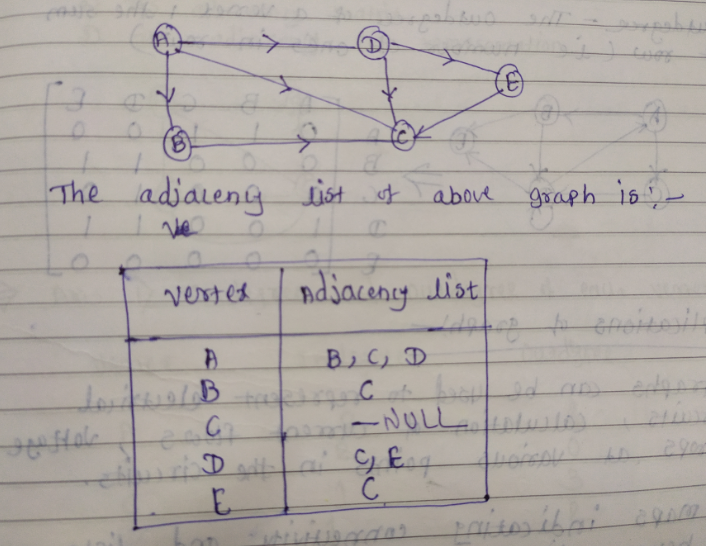 A D
E
B C
The adjaceny list of above graph is :-
Ve
Vertex Adjacency list
A B, C, D
B C
C — NULL
D C, E
E C